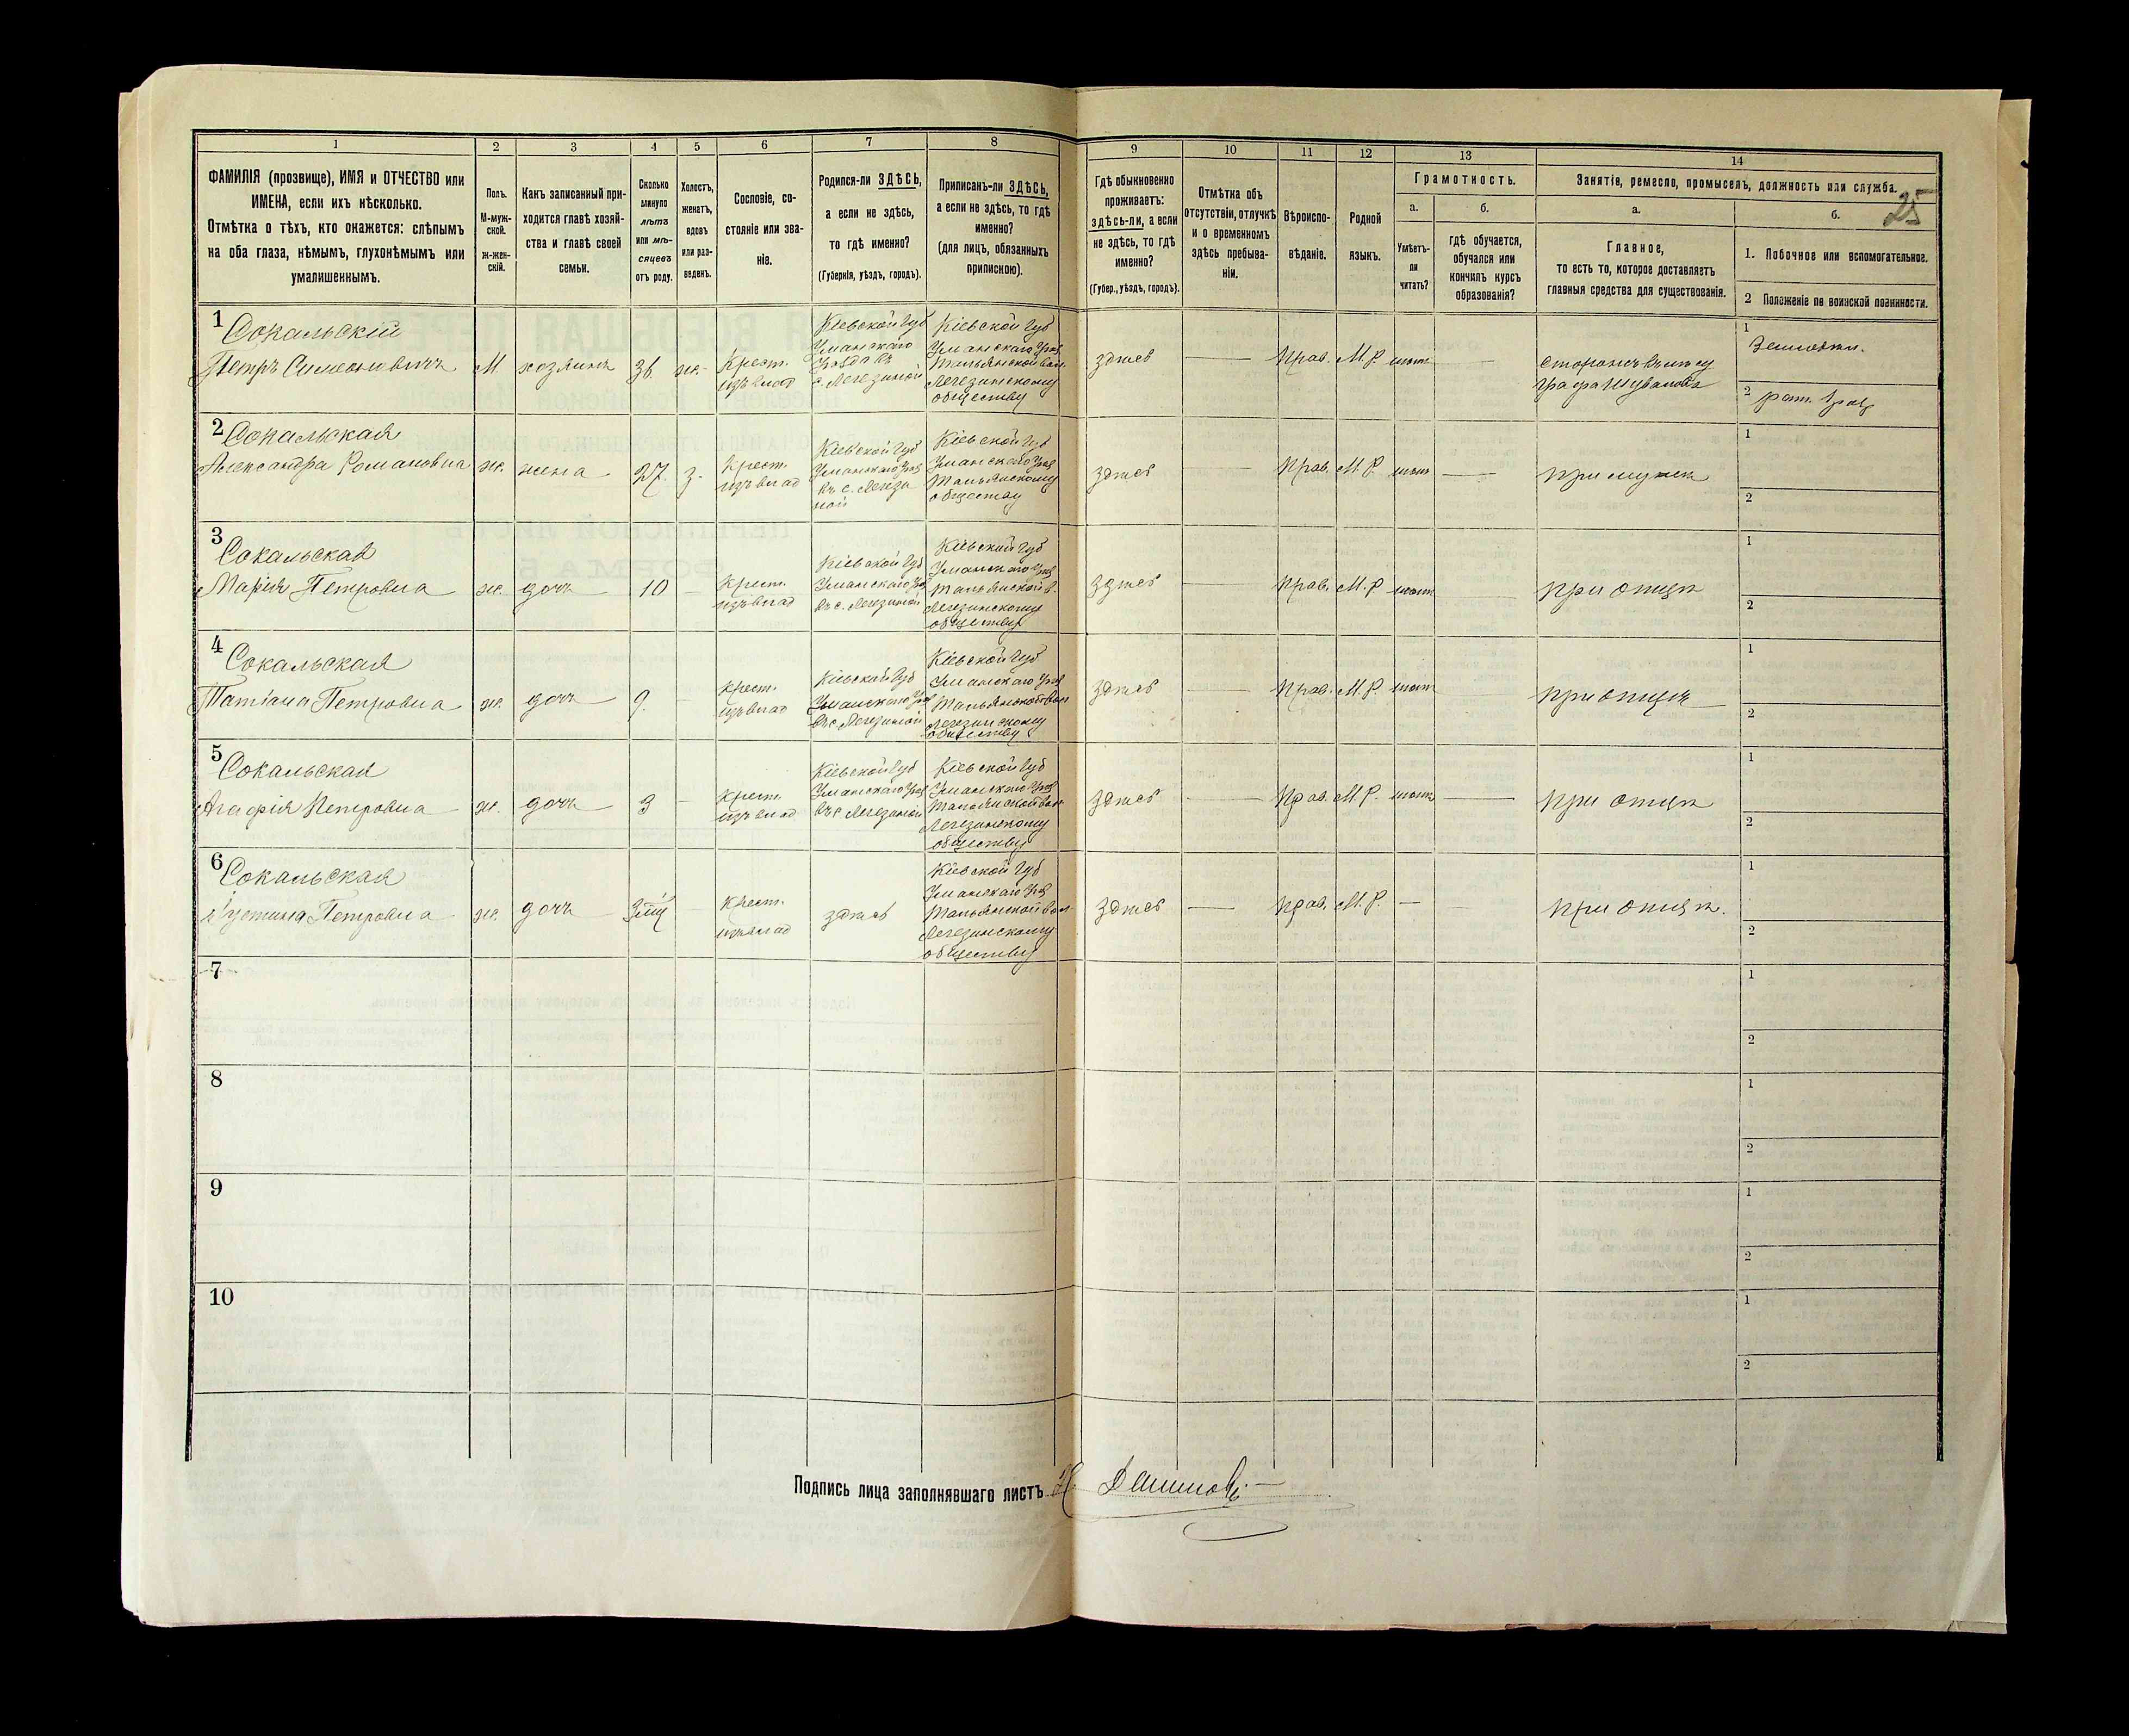 1
2
3
4
5
6
7
8
9
10
11
12
13
14
ФАМИЛІЯ (прозвище), ИМЯ и ОТЧЕСТВО или
ИМЕНА, если ихъ нѣсколько.
Отмѣтка о тѣхъ, кто окажется: слѣпымъ
на оба глаза, нѣмымъ, глухонѣмымъ или
умалишеннымъ.
Полъ.
М-муж-
ской.
Ж-жен-
скій.
Какъ записанный при-
ходится главѣ хозяй-
ства и главѣ своей
семьи.
Сколько
минуло
лѣтъ
или мѣ-
сяцевъ
отъ роду.
Холостъ,
женатъ,
вдовъ
или раз-
веденъ.
Сословіе, со-
стояніе или зва-
ніе.
Родился-ли ЗДѢСЬ,
а если не здѣсь,
то гдѣ именно?
(Губернія, уѣздъ, городъ).
Приписанъ-ли ЗДѢСЬ,
а если не здѣсь, то гдѣ
именно?
(для лицъ, обязанныхъ
припискою).
Гдѣ обыкновенно
проживаетъ:
здѣсь-ли, а если
не здѣсь, то гдѣ
именно?
(Губер., уѣздъ, городъ).
Отмѣтка объ
отсутствіи, отлучкѣ
и о временномъ
здѣсь пребыва-
ніи.
Вѣроиспо-
вѣданіе.
Родной
языкъ.
Грамотность.
а.
Умѣетъ-
ли
читать?
б.
гдѣ обучается,
обучался или
кончилъ курсъ
образованія?
Занятіе, ремесло, промыселъ, должность или служба.
25
а.
Главное,
то есть то, которое доставляетъ
главныя средства для существованія.
б.
1. Побочное или вспомогательное.
2 Положеніе по воинской повинности.
1
Сокальскій
Петръ Симеоновичъ
М
хозяинъ
36.
ж.
Крест.
изъ влад
Кіевской Губ
Уманскаго
Уѣзда въ
с. Легезиной
Кіевской Губ
Уманскаго Уѣзд
Тальянской вол
Легезинскому
обществу
здѣсь
Прав.
М. Р.
нѣтъ
графа Шувалова
1
2
2
Сокальская
Александра Романовна
ж.
жена
27.
з.
Крест.
изъ влад
Кіевской Губ
Уманскаго Уѣзд
въ с. Легези
ной
Кіевской Губ
Уманскаго Уѣзд
Тальянскому
обществу
здѣсь
Прав.
М. Р.
нѣтъ
при мужѣ
1
2
3
Сокальская
Марія Петровна
ж.
дочь
10
Крест.
изъ влад
Кіевской Губ
Уманскаго Уѣзд
въ с. Легезиной
Кіевской Губ
Уманскаго Уѣзд
Тальянской в.
Легезинскому
обществу
здѣсь
Прав.
М. Р
нѣтъ
при отцѣ
1
2
4
Сокальская
Татіана Петровна
ж.
дочь
9.
Крест.
изъ влад
Кіевской Губ
Уманскаго Уѣзд
въ с. Легезиной
Кіевской Губ
Уманскаго Уѣзд
Тальянской вол
Легезинскому
обществу
здѣсь
Прав.
М. Р
нѣтъ
при отцѣ
1
2
5
Сокальская
Агафія Петровна
ж.
дочь
3
Крест.
изъ влад
Кіевской Губ
Уманскаго Уѣзд
въ с. Легезиной
Кіевской Губ
Уманскаго Уѣзд
Тальянской вол
Легезинскому
обществу
здѣсь
Прав.
М. Р.
нѣтъ
при отцѣ
1
2
6
Сокальская
Іустина Петровна
ж.
дочь
Крест.
изъ влад
здѣсь
Кіевской Губ
Уманскаго Уѣзд
Тальянской вол
Легезинскому
обществу
здѣсь
Прав.
М. Р.
при отцѣ.
1
2
7
1
2
8
1
2
9
1
2
10
1
2
Подпись лица заполнявшаго листъ